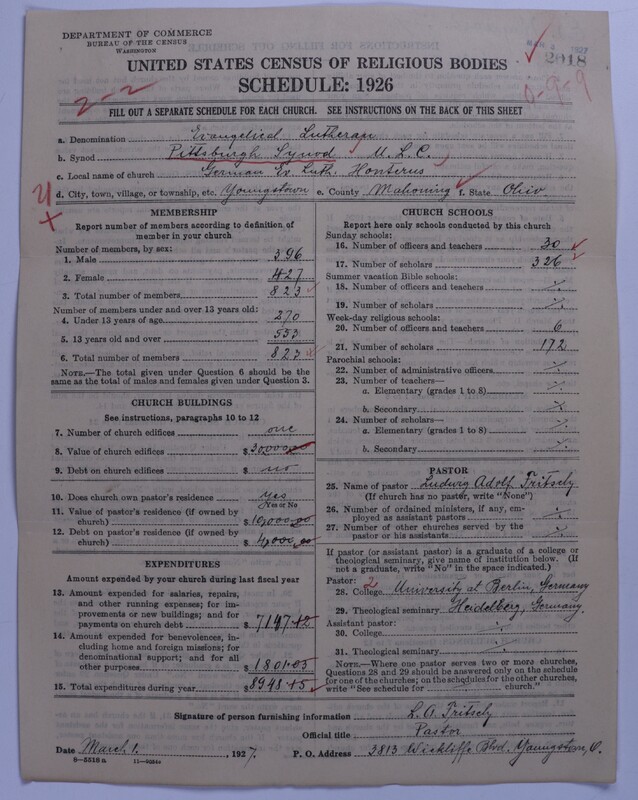 DEPARTMENT OF COMMERCE
BUREAU OF THE CENSUS
WASHINGTON
2018
UNITED STATES CENSUS OF RELIGIOUS BODIES
SCHEDULE: 1926
2-2
0-9-9
FILL OUT A SEPARATE SCHEDULE FOR EACH CHURCH. SEE INSTRUCTIONS ON THE BACK OF THIS SHEET
a. Denomination Evangelical Lutheran
b. Synod Pittsburgh Synod U. L. C.
c. Local name of church German Ev. Luth. Honterus
d. City, town, village, or township, etc. Youngstown e. County Mahoning f. State Ohio
MEMBERSHIP
Report number of members according to definition of member in your church
Number of members, by sex:
1. Male 396
2. Female 427
3. Total number of members 823
Number of members under and over 13 years old:
4. Under 13 years of age 270
5. 13 years old and over 553
6. Total number of members 823
NOTE.—The total given under Question 6 should be
same as the total of males and females given under Question 3.
CHURCH BUILDINGS
See instructions, paragraphs 10 to 12
7. Number of church edifices one
8. Value of church edifices $30,000.00
9. Debt on church edifices $ no
10. Does church own pastor's residence yes
Yes or No
11. Value of pastor's residence (if owned by
church) $10,000.00
12. Debt on pastor's residence (if owned by
church) $4,000.00
EXPENDITURES
Amount expended by your church during last fiscal year
13. Amount expended for salaries, repairs,
and other running expenses; for im-
provements or new buildings; and for
payments on church debt $
14. Amount expended for benevolences,
including home and foreign missions; for
denominational support; and for all
other purposes $1801.03
15. Total expenditures during year $8948.15
CHURCH SCHOOLS
Report here only schools conducted by this church
Sunday schools:
16. Number of officers and teachers 30
17. Number of scholars 326
Summer vacation Bible schools:
18. Number of officers and teachers
19. Number of scholars
Week-day religious schools:
20. Number of officers and teachers 6
21. Number of scholars 172
Parochial schools:
22. Number of administrative officers
23. Number of teachers—
a. Elementary (grades 1 to 8)
b. Secondary
24. Number of scholars—
a. Elementary (grades 1 to 8)
b. Secondary
PASTOR
25. Name of pastor Ludwig Adolf Fritsch
(If church has no pastor, write "None")
26. Number of ordained ministers, if any, em-
ployed as assistant pastors
27. Number of other churches served by the
pastor or his assistants
If pastor (or assistant pastor) is a graduate of a college or
theological seminary, give name of institution below. (If
not a graduate, write "No" in the space indicated.)
Pastor: 2
28. College University at Berlin, Germany
29. Theological seminary Heidelberg, Germany.
Assistant pastor:
30. College
31. Theological seminary
NOTE.—Where one pastor serves two or more churches,
Questions 28 and 29 should be answered only on the schedule
for one of the churches; on the schedules for the other churches,
write "See schedule for church."
Signature of person furnishing information L. A. Fritsch
Official title Pastor
Date March 1. , 1927.
P. O. Address 3813 Wickliffe Blvd. Youngstown, O.
8—5518 a